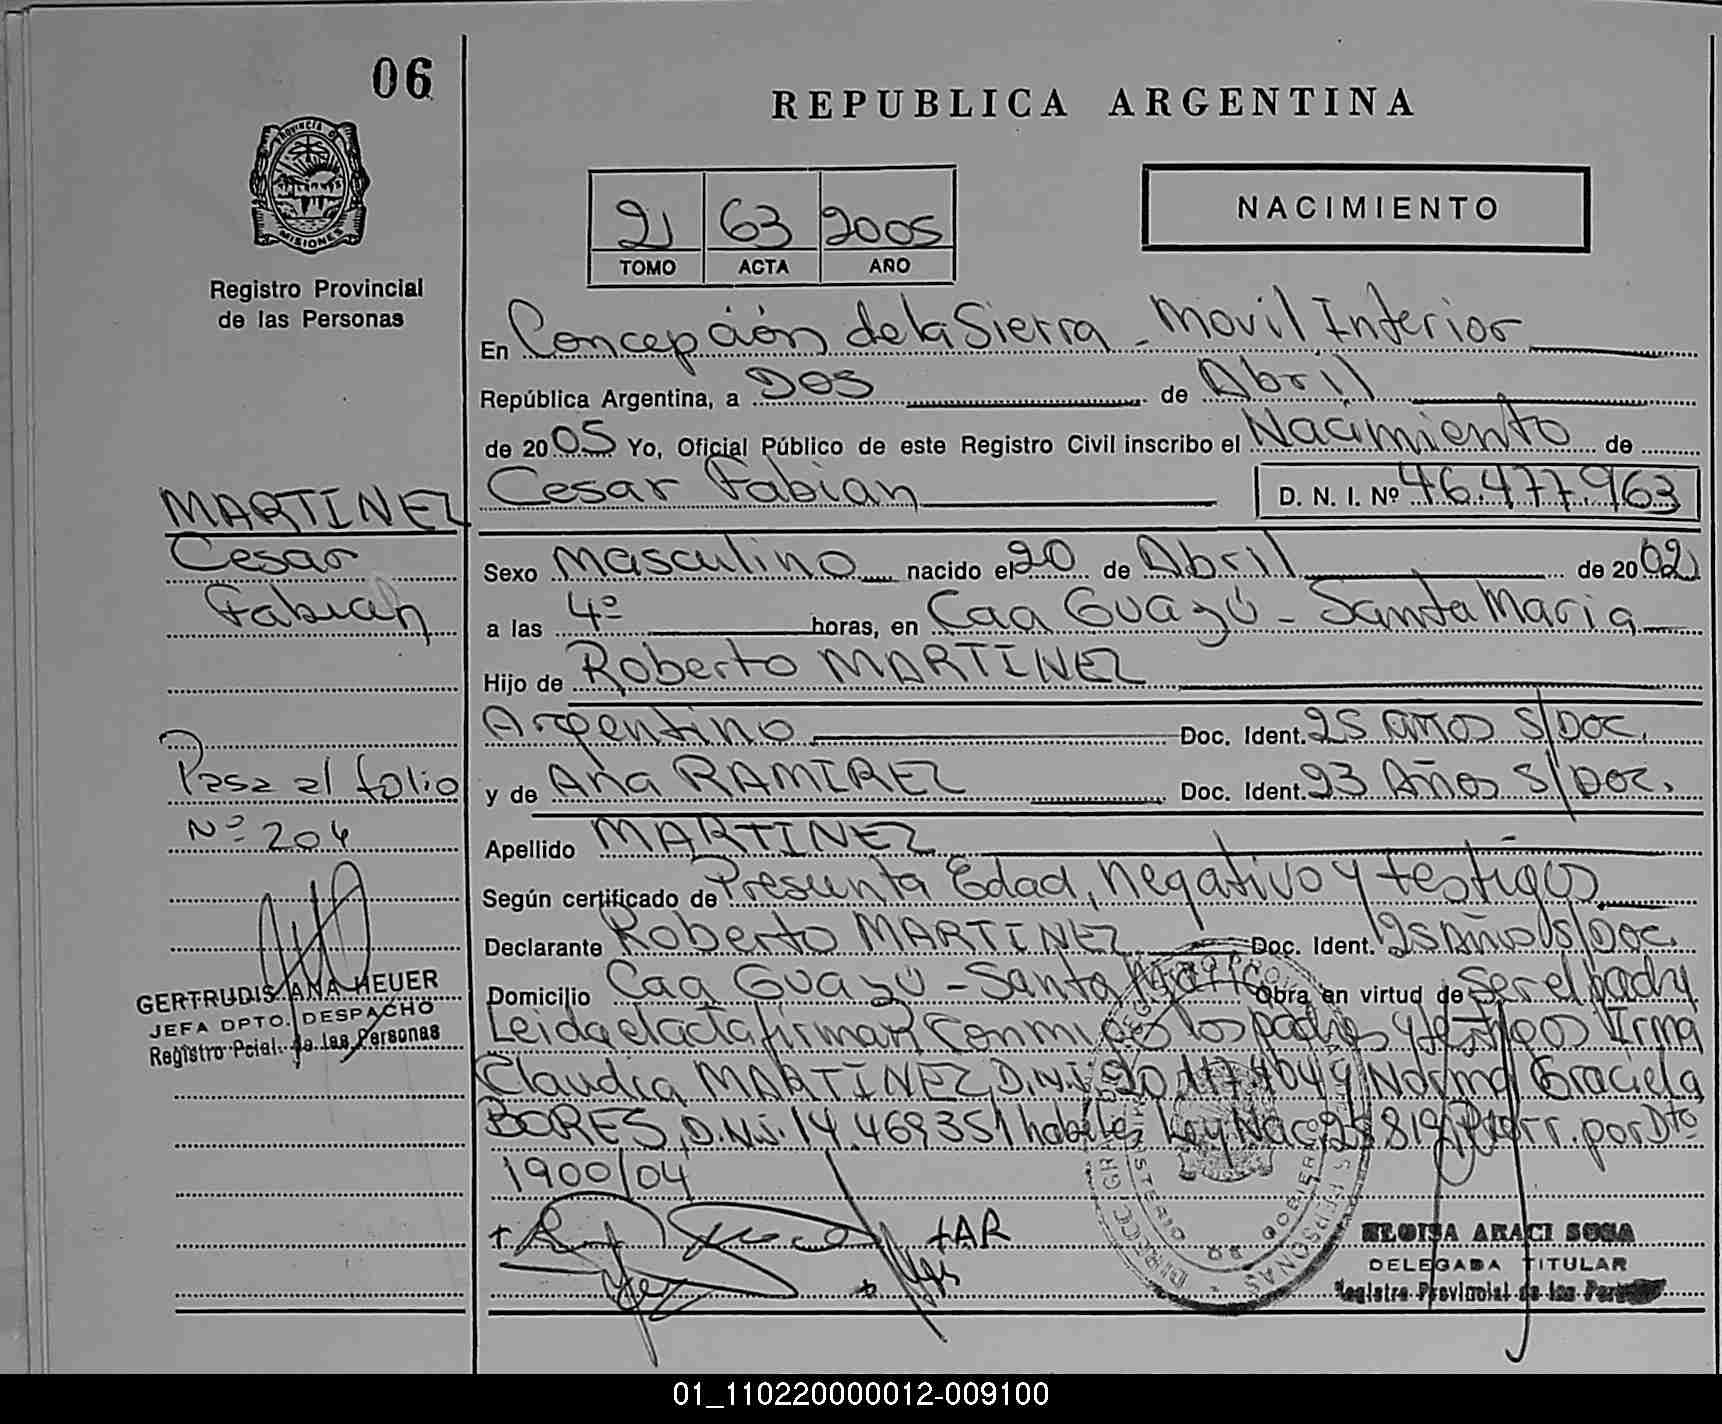 06
PROVINCIA DE
MISIONES
Registro Provincial
de las Personas
REPUBLICA ARGENTINA
2 63 2005
TOMO ACTA AÑO
NACIMIENTO
En Concepción de la Sierra - Movil Interior
República Argentina, a Dos de Abril
de 2005 Yo, Oficial Público de este Registro Civil inscribo el Nacimiento de
Cesar Fabian D. N. I. Nº 46.477.963
MARTINEZ
Cesar
Fabian
Sexo Masculino nacido el 20 de Abril de 2002
a las 4º horas, en Caa Guazú - Santa Maria
Hijo de Roberto MARTINEZ
Argentino Doc. Ident. 25 años S/Doc.
y de Ana RAMIREZ Doc. Ident. 23 Años S/Doc.
Pasa al folio
Nº 204
Apellido MARTINEZ
Según certificado de Presunta Edad, negativo y testigos
Declarante Roberto MARTINEZ Doc. Ident. 25 Años S/Doc.
Domicilio Caa Guazú - Santa Maria Obra en virtud de Ser el padre
Leida el acta firman conmigo los padres y testigos Irma
Claudia MARTINEZ, D.N.I. Norma Graciela
BORES, D.N.I. 14.469351 habiles Ley Nac. 25819 Prorr. por Dto
1900/04
GERTRUDIS ANA HEUER
JEFA DPTO. DESPACHO
Registro Pcial. de las Personas
+AR
ELOISA ARACI SOSA
DELEGADA TITULAR
Registro Provincial de las Personas
01_110220000012-009100